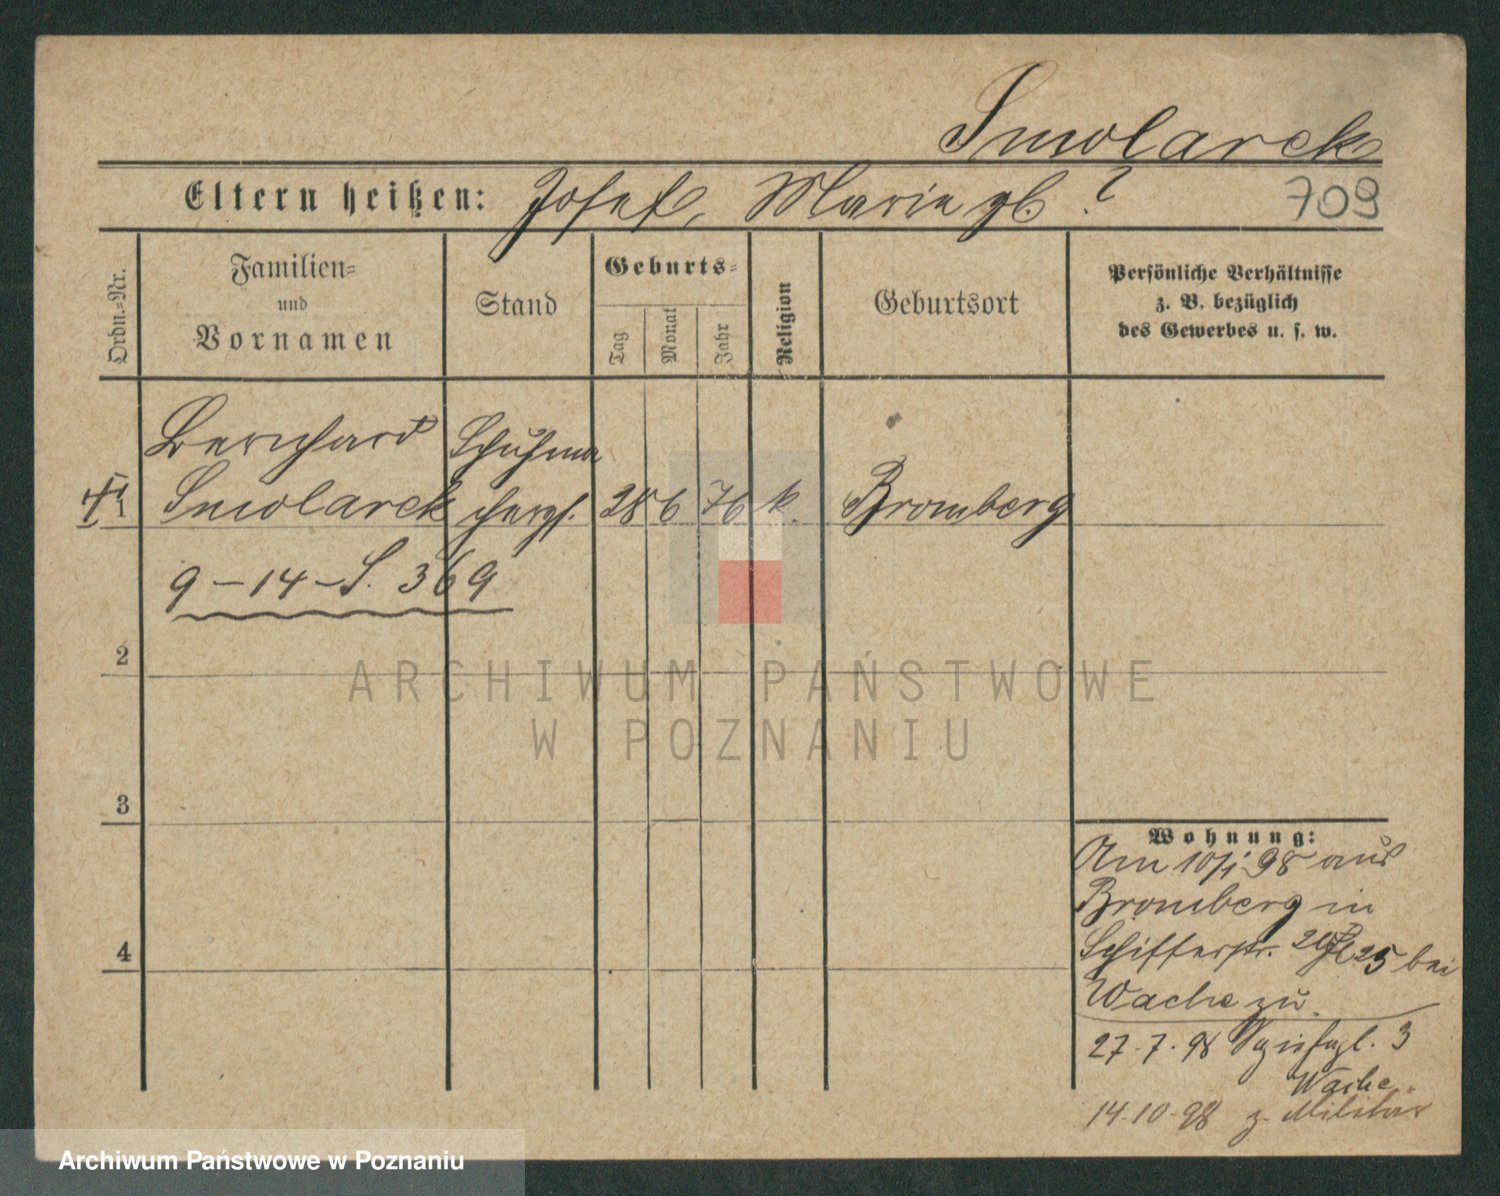 Smolarek
Eltern heißen: Josef, Marie gb. ?
709
Ordn.-Nr.
Familien-
und
Vornamen
Stand
Geburts-
Tag
Monat
Jahr
Religion
Geburtsort
Persönliche Verhältnisse
z. B. bezüglich
des Gewerbes u. s. w.
Bernhard Schuhma
1 Smolarek chergs. 28 6 76 k. Bromberg
9-14-S. 369
2
ARCHIWUM PAŃSTWOWE
W POZNANIU
3
4
Wohnung:
Am 10/1 98 aus
Bromberg in
Schifferstr. 25 bei
Wache zu
27.7.98 3
Wache
14.10.98 z. Militär
Archiwum Państwowe w Poznaniu